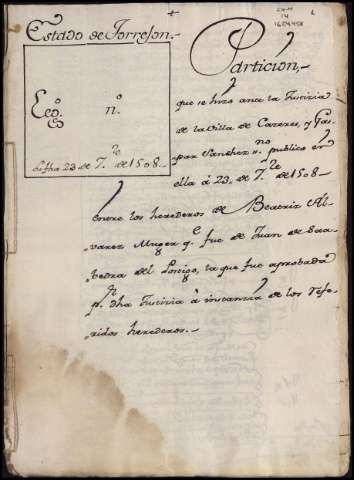 Estado de Torrejon.-
Particion,-
Eo. n.
fha 23. de 7.re de 1508.
que se hizo ante la Justicia
de la Villa de Cazeres, y Gas-
par Sanchez n.no publico en
ella á 23, de 7.re de 1508-
entre los herederos de Beatriz Al-
varez Muger q.e fue de Juan de Saa-
bedra del , la que fue aprobada
p. dha Justicia á instanzia de los refe-
ridos herederos.-